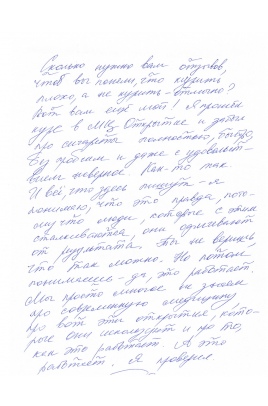 Сколько нужно вам отзывов,
чтоб вы поняли, что курить
плохо, а не курить - отлично?
Вот вам ещё мой! Я прошёл
курс в МЦ Открытие и забыл
про сигареты полностью, быстро,
без проблем и даже с удовольст-
вием наверное. Как-то так.
И всё, что здесь пишут - я
понимаю, что это правда, пото-
му что люди, которые с этим
сталкиваются, они
от результата. Ты не веришь
что так можно. Но потом,
понимаешь - да, это работает.
Мы просто многое не знаем
про современную медицину
про вот эти открытия, кото-
рые они используют и про то,
как это работает. А это
работает. Я проверил.